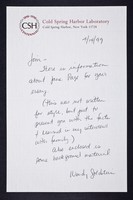 CSH
Cold Spring Harbor Laboratory
Cold Spring Harbor, New York 11724
Jim -
Here is information
about Jane Page for your
essay.
(This was not written
for style, but just to
present you with the facts
I learned in my interviews
with family.)
Also enclosed is
some background material.
Wendy Goldstein